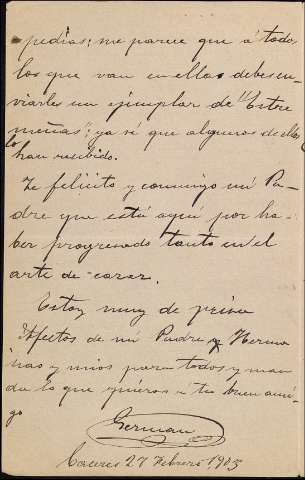 pedias; me parece que á todos
los que van en ellas debes en-
viarles un ejemplar de "Extre
meñas"; ya sé que algunos de ellos
lo han recibido.
Te felicito y conmigo mi Pa-
dre que está aquí por ha-
ber progresado tanto en el
arte de cazar.
Estoy muy de prisa
Afectos de mi Padre y Herma
nas y mios para todos y man
da lo que quieras á tu buen ami-
go
German
Cáceres 27 Febrero 1903